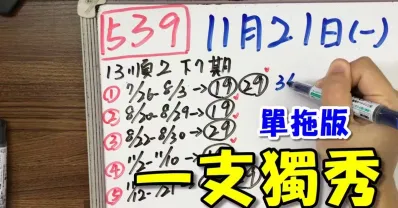 539 11月21日(一)
13順2下7期
① 7/26-8/3→⑲ ㉙ 3
② 8/20-8/29→⑲
③ 8/22-8/30→㉙
④ 11/2-11/10→
單拖版
一支獨秀